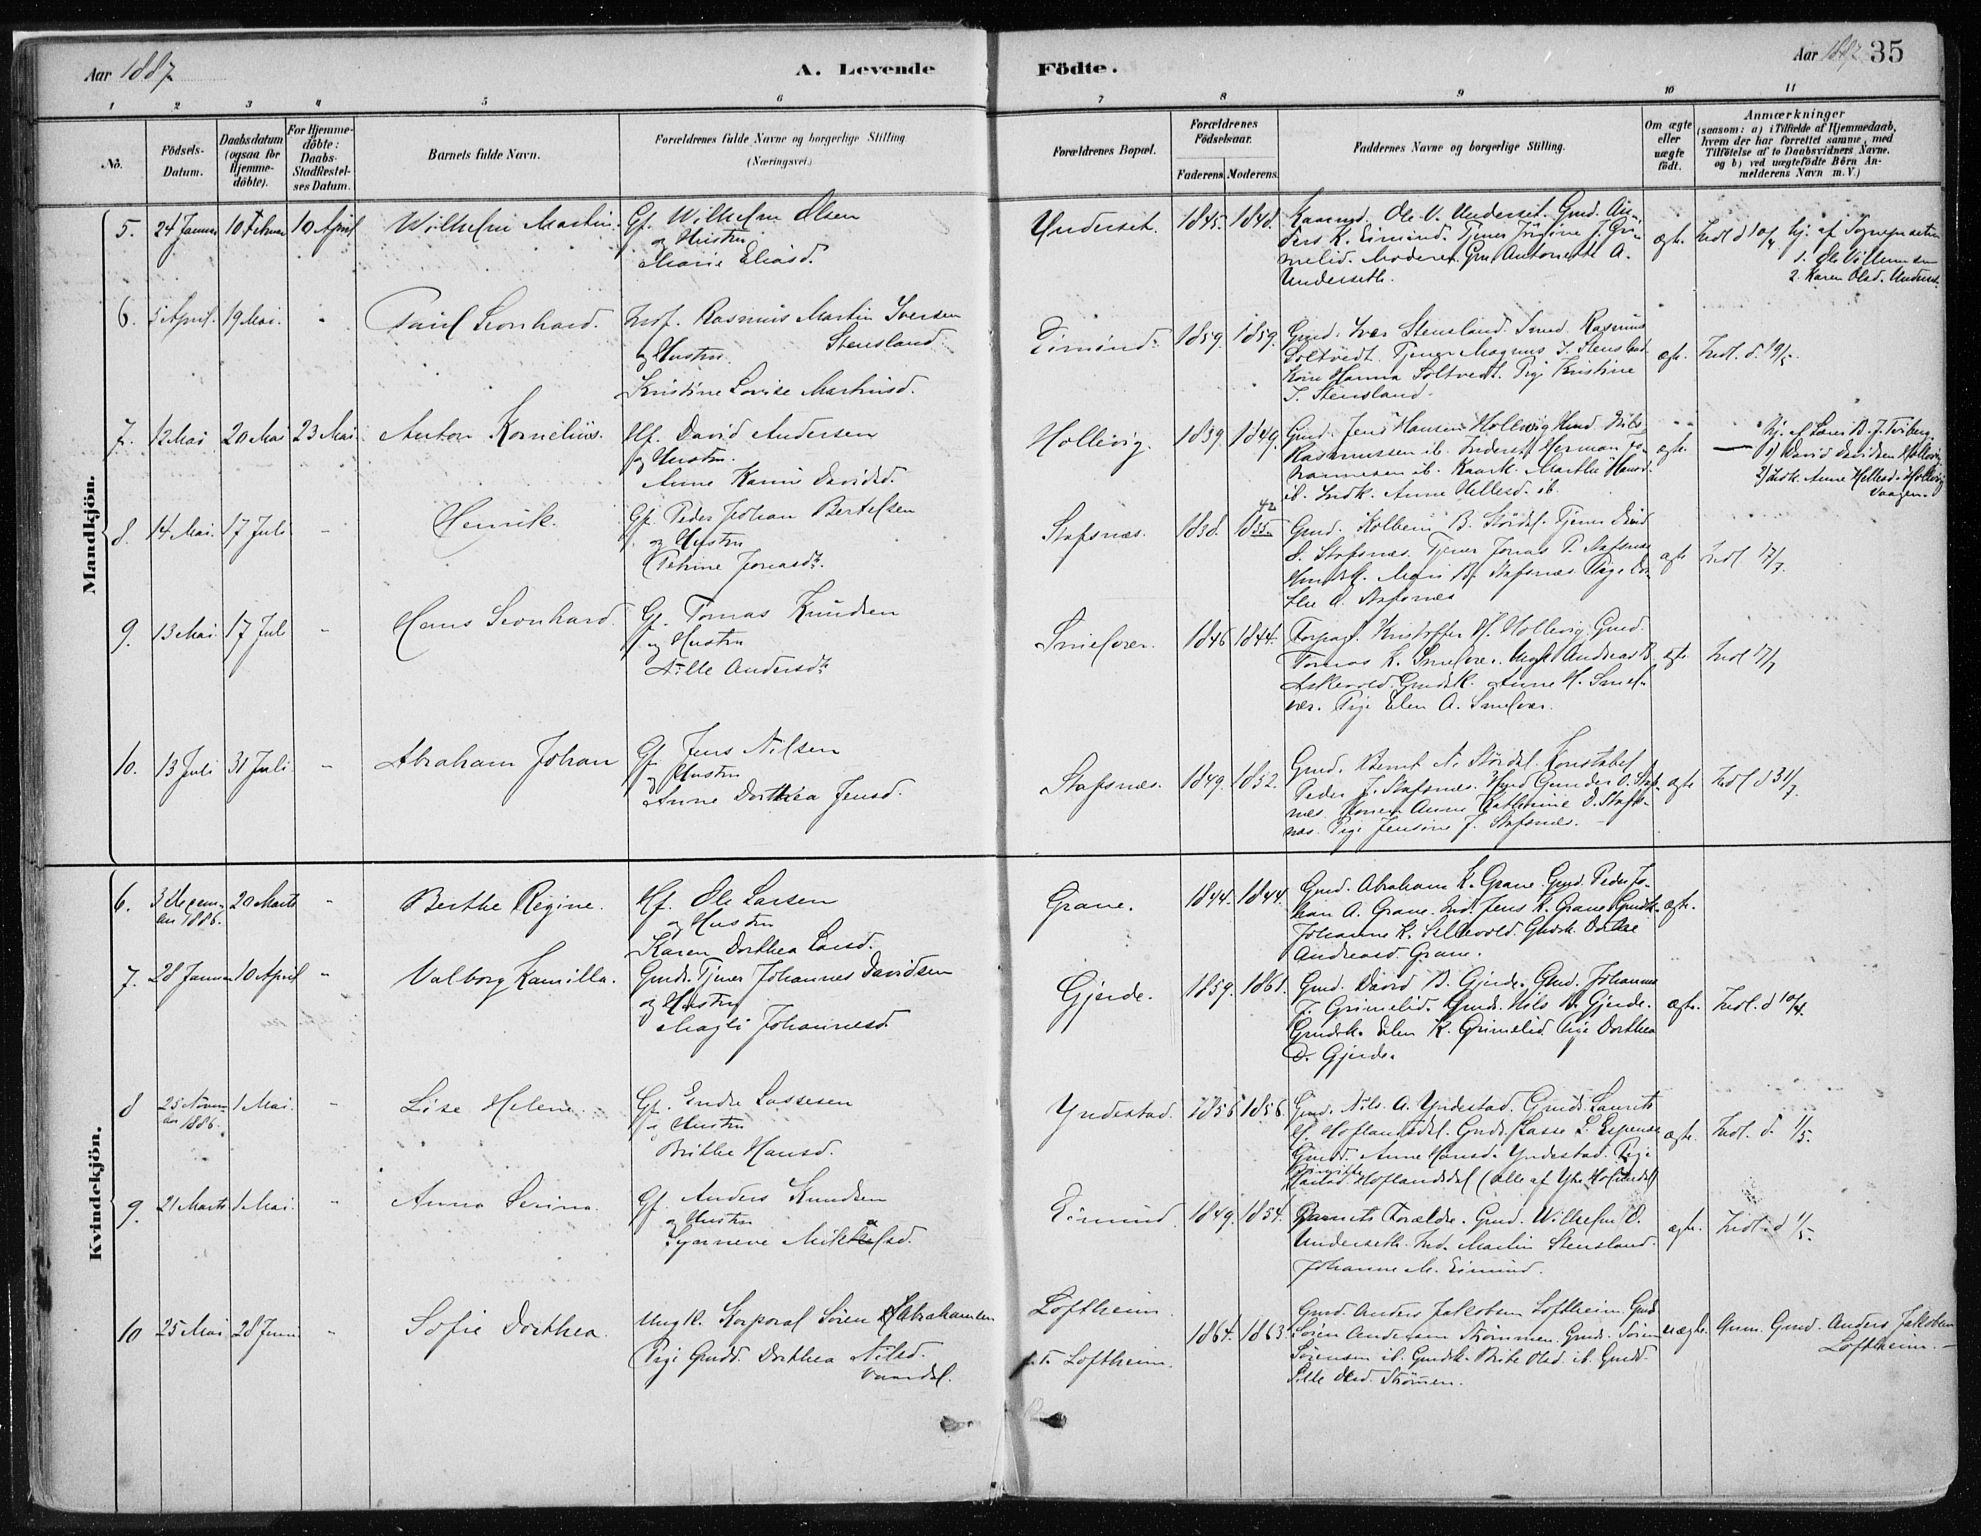 Aar 1887
A. Levende
Födte.
Aar 1887 35
1 2 3 4 5 6 7 8 9 10 11
No.
Födsels-
Datum.
Daabsdatum
(ogsaa for
Hjemme-
döbte).
For Hjemme-
döbte:
Daabs-
Stadfæstel-
ses Datum.
Barnets fulde Navn.
Forældrenes fulde Navne og borgerlige Stilling
(Næringsvei.)
Forældrenes Bopæl.
Forældrenes
Födselsaar.
Faderens. Moderens.
Faddernes Navne og borgerlige Stilling.
Om ægte
eller
uægte
födt.
Anmærkninger
(saasom: a) i Tilfælde af Hjemmedaab,
hvem der har forrettet samme, med
Tilföielse af to Daabsvidners Navne,
og b) ved uægtefödte Börn An-
melderens Navn m. V.)
Mandkjön.
5. 24 Januar 10 Februar 10 April Wilhelm Martin. Gf. Wilhelm Olsen
og Hustru
Marie Eliasd.
Underset. 1845. 1848.
Ole V. Underset. Gmd. An-
ders K. Eimind. Tjener
melid. Antonette A.
Underseth.
ægte. Indl. d 10/4 hj. af Sognepræsten
1. Ole Villumsen
2. Karen Olsd. Underset.
6. 5 April. 19 Mai. Paul Leonhard. Indf. Rasmus Martin Iversen
og Hustru Stensland
Kristine Lovise Martinusd.
Eimind. 1859. 1859.
Gmd. Iver Stensland. Rasmus
Soltvedt. Tjener Magnus I. Stensland
Kone Hanna Soltvedt. Pige Kristine
I. Stensland.
ægte. Indl. d. 19/5.
7. 12 Mai 20 Mai 23 Mai Anton Kornelius. Hf. David Andersen
og Hustru.
Anne Karine Davidsd.
Hollevig. 1839. 1849.
Gmd. Jens Hansen Hollevig Nils
Rasmussen ib. Inderst Herman Jo-
hannesen ib. Marthe Hansd.
ib. Indk. Anne Hellesd. ib.
ægte. — hj. af Lærer
1) David Davidsen Hollevig
2) Indk. Anne Hellesd. Hollevig
vaagen.
8. 14 Mai. 17 Juli Henrik. Gf. Peder Johan Bertelsen
og Hustru
Petrine Jonasdr.
Stafsnæs. 1838. 42
1855
Gmd. Kolbein B. Stördal. Tjener
Stafsnæs. Tjener Jonas P. Stafsnæs
Stafsnæs Pige Dor-
thea Stafsnæs
ægte Indl 17/7
9. 13 Mai. 17 Juli Hans Leonhard Gf. Tomas Knudsen
og Hustru
Nille Andersdr.
Smelvær. 1846 1844.
Forpagt. Kristoffer Hollevig Gmd.
Tomas K. Smelvær. Ungk. Andreas B.
Askevold. Gmdsk. Anne H. Smel-
vær. Pige Elen A. Smelvær.
ægte Indl 17/7
10. 13 Juli 31 Juli Abraham Johan Gf. Jens Nilsen
og Hustru
Anne Dorthea Jensd.
Stafsnæs. 1849. 1852.
Gmd. Bernt N. Stördal. Konstabel
Peder J. Stafsnæs. Gunder O. Staf-
næs. Konen Anne Kathrine D. Stafs-
næs. Pige Jensine J. Stafsnæs.
ægte Indl d 31/7
Kvindekjön.
6. 3 Decem-
ber 1886. 20 Marts Berthe Regine. Hf. Ole Larsen
og Hustru
Karen Dorthea Larsd.
Grane. 1844. 1844.
Gmd. Abraham K. Grane. Gmd. Peder Jo-
han A. Grane. Ind. Jens K. Grane. Gmdsk.
Johanne K. Sellevold. Gmdsk. Dorthe
Andreasd. Grane.
ægte.
7. 28 Januar 10 April Valborg Kamilla. Gmds. Tjener Johannes Davidsen
og Hustru
Magli Johannesd.
Gjerde. 1859. 1861.
Gmd. David B. Gjerde. Gmd. Johannes
T. Grimelid. Gmds. Nils D. Gjerde.
Gmdsk. Elen K. Grimelid. Pige Dorthea
D. Gjerde.
ægte. Indl. d 10/4.
8 25 Novem-
ber 1886. 1 Mai. Lise Helene. Gf. Endre Lassesen
og Hustru
Brithe Hansd.
Yndestad. 1856 1856.
Gmd. Nils A. Yndestad. Gmds. Laurits
H. Hoflandsdal. Gmds. Lasse L. Espenæs
Gmdd. Anne Hansd. Yndestad. Pige
Birgitte
Hoflandsdal (Alle af Ytre Hofland)
ægte. Indl. d. 1/5.
9. 21 Marts 1 Mai. Anna Serina. Gf. Anders Knudsen
og Hustru
Synneve Mikkelsd.
Eimind. 1849. 1854.
Barnets Forældre. Gmd. Wilhelm O.
Underseth. Ind. Martin Stensland.
Johanne M. Eimind.
ægte. Indl. d 1/5.
10 25 Mai 28 Juni Sofie Dorthea. Ungk. Korporal Sören Abrahamsen
Pige Gmdd. Dorthea Nilsd.
Vaardal.
Loftheim
p.t. Loftheim. 1864. 1863.
Gmd. Anders Jakobsen Loftheim. Gmds.
Sören Andersen Strömmen. Gmds. Sören
Sörensen ib. Gmdsk. Brite Olsd. ib. Gmdd.
Pille Olsd. Strömmen.
uægte. Anm. Gmd. Anders Jakobsen
Loftheim. —